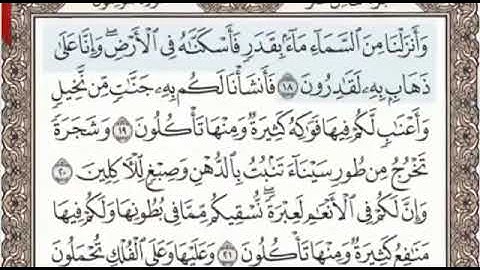 وَأَنزَلْنَا مِنَ السَّمَاءِ مَاءً بِقَدَرٍ فَأَسْكَنَّاهُ فِي الْأَرْضِ ۖ وَإِنَّا عَلَىٰ
ذَهَابٍ بِهِ لَقَادِرُونَ ١٨ فَأَنشَأْنَا لَكُم بِهِ جَنَّاتٍ مِّن نَّخِيلٍ
وَأَعْنَابٍ لَّكُمْ فِيهَا فَوَاكِهُ كَثِيرَةٌ وَمِنْهَا تَأْكُلُونَ ١٩ وَشَجَرَةً
تَخْرُجُ مِن طُورِ سَيْنَاءَ تَنبُتُ بِالدُّهْنِ وَصِبْغٍ لِّلْآكِلِينَ ٢٠
وَإِنَّ لَكُمْ فِي الْأَنْعَامِ لَعِبْرَةً ۖ نُّسْقِيكُم مِّمَّا فِي بُطُونِهَا وَلَكُمْ فِيهَا
مَنَافِعُ كَثِيرَةٌ وَمِنْهَا تَأْكُلُونَ ٢١ وَعَلَيْهَا وَعَلَى الْفُلْكِ تُحْمَلُونَ